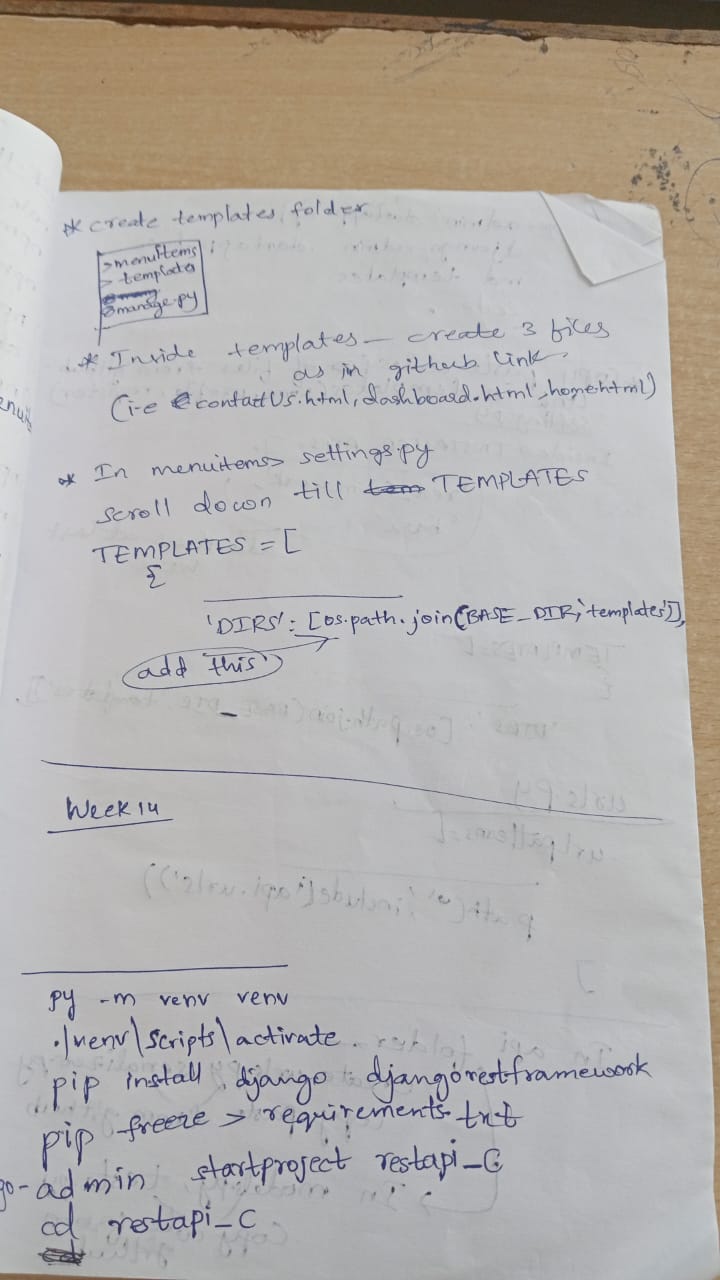 * create templates folder
> menuItems
> templates
manage.py
* Inside templates - create 3 files
as in github link.
(i-e contactUs.html, dashboard.html, home.html)
* In menuitems> settings.py
scroll down till TEMPLATES
TEMPLATES = [
{
'DIRS': [os.path.join(BASE_DIR, 'templates')],
add this
Week 14
py -m venv venv
./venv\scripts\activate
pip install django djangorestframework
pip freeze > requirements.txt
go-admin startproject restapi_C
cd restapi_C